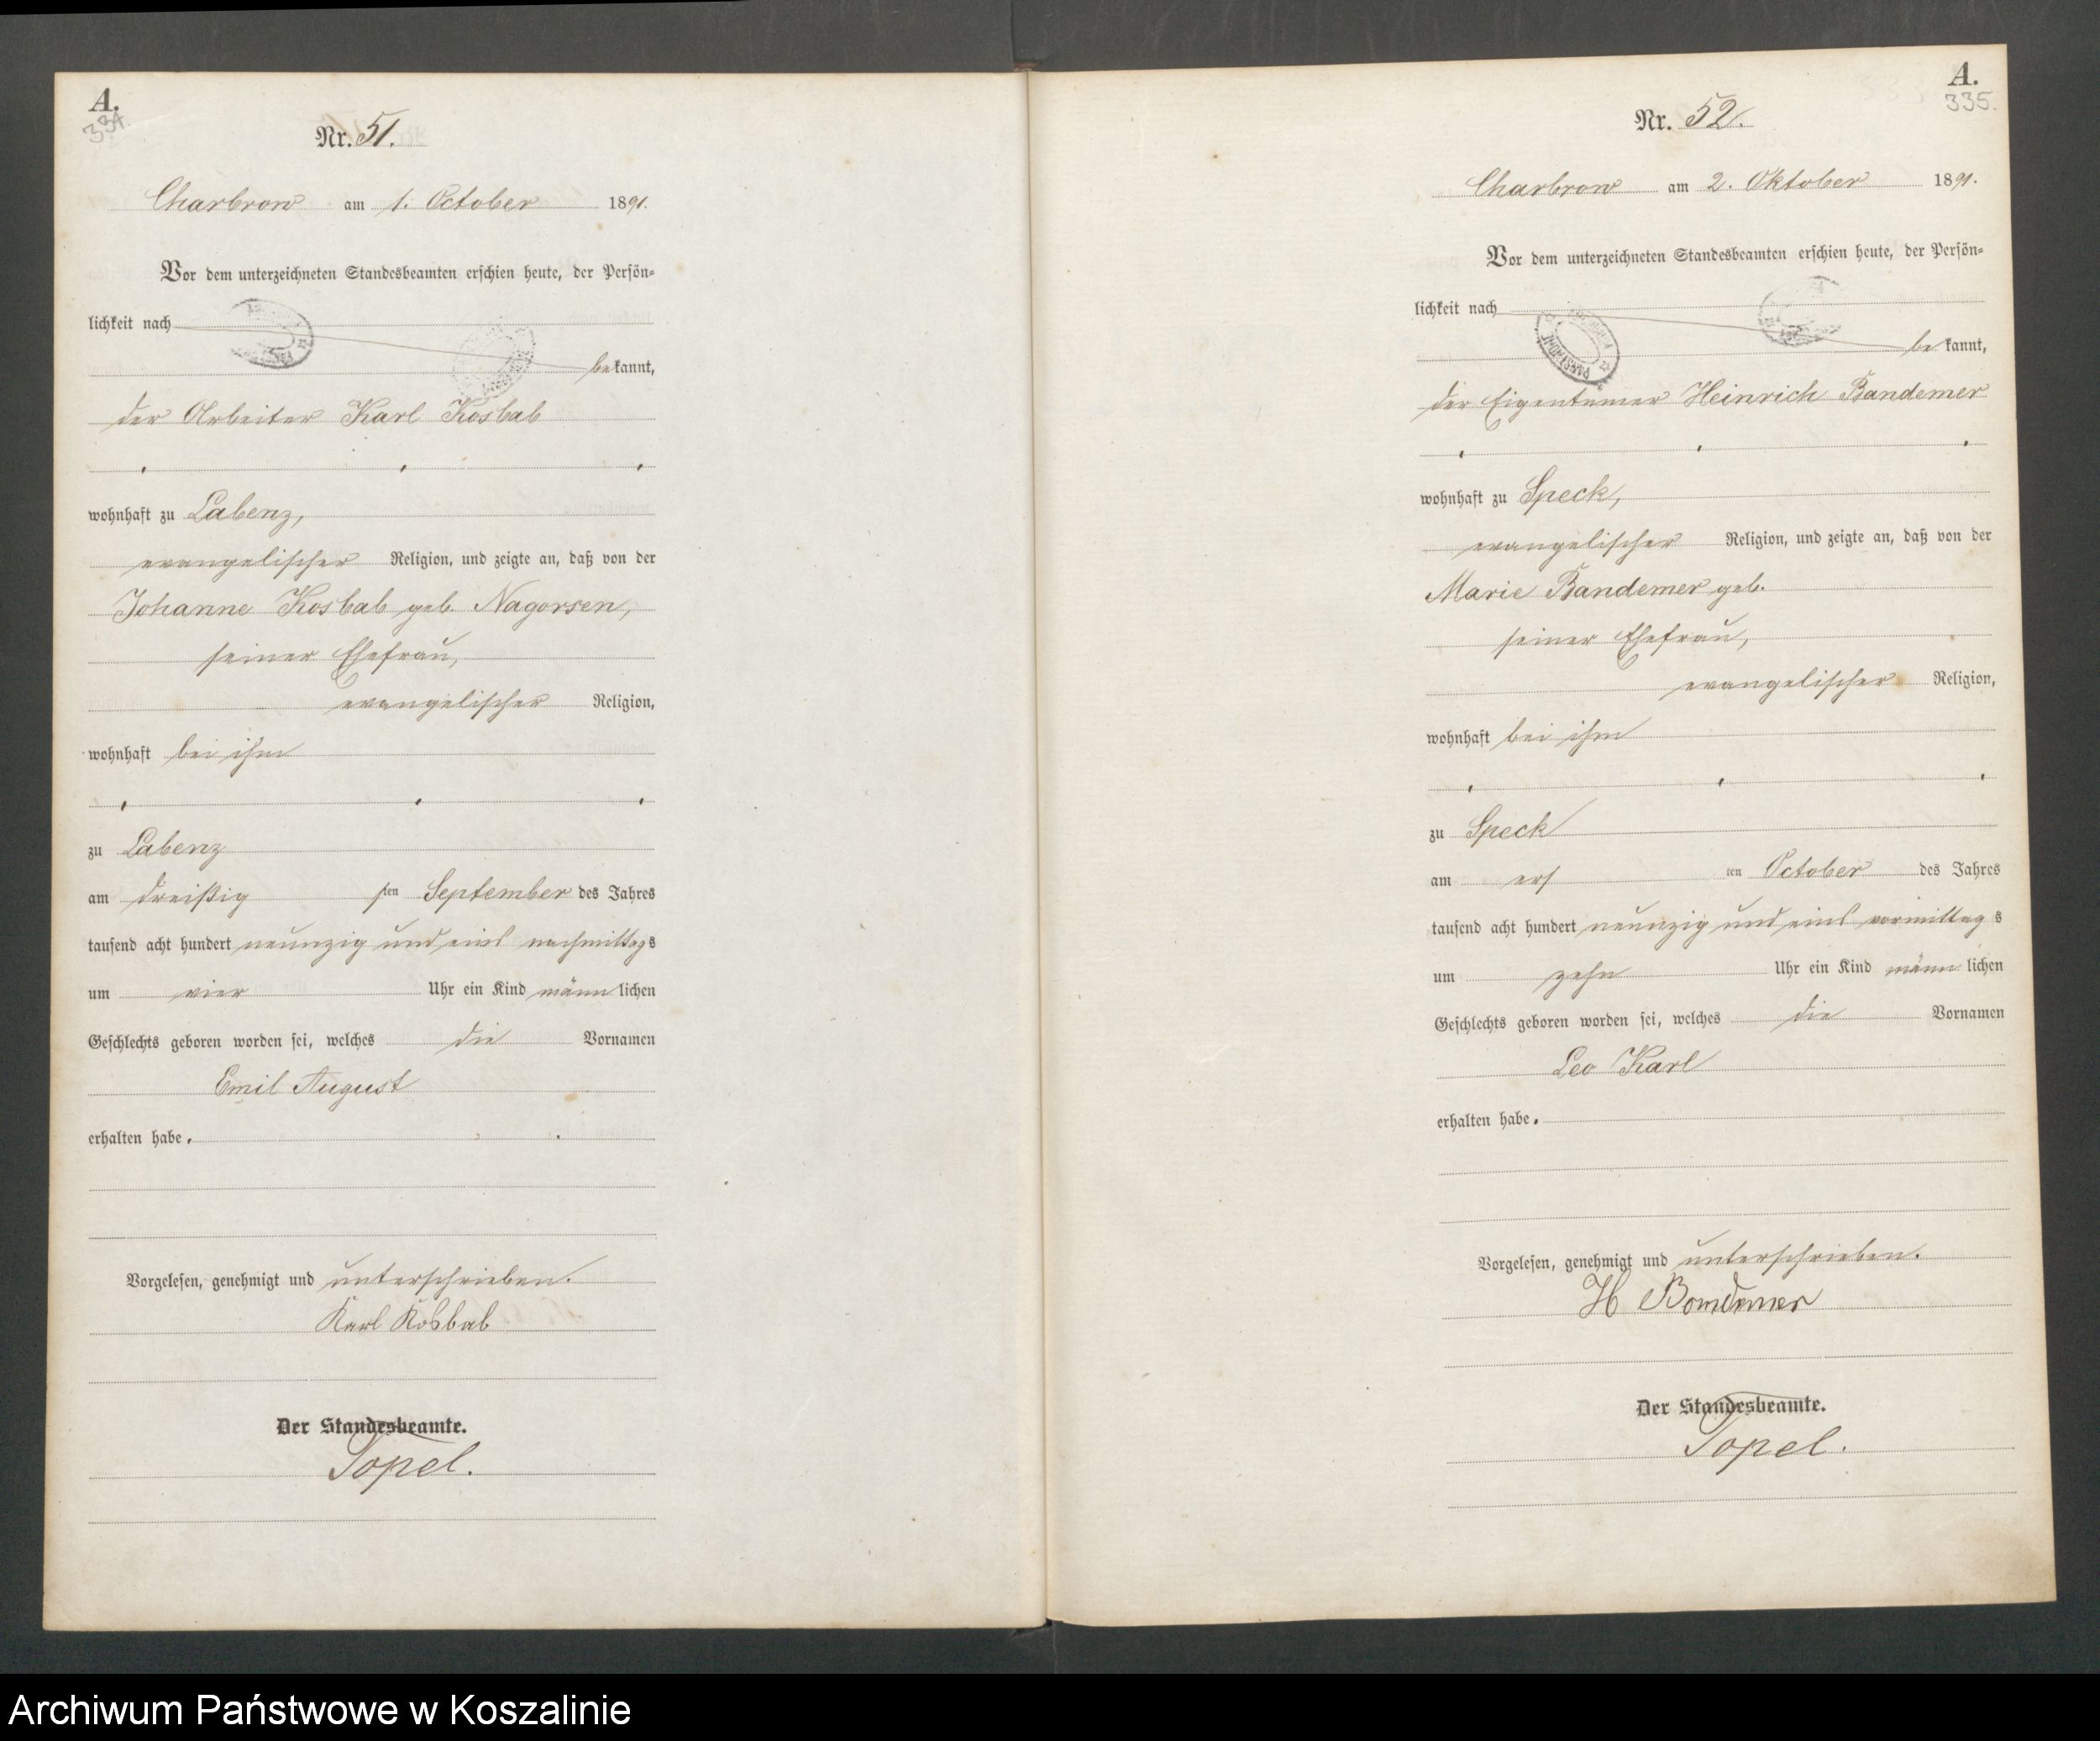 A.
334.
Nr. 51.
Charbrow am 1. October 1891.
Vor dem unterzeichneten Standesbeamten erschien heute, der Persön-
lichkeit nach
bekannt,
der Arbeiter Karl Kosbab
wohnhaft zu Labenz,
evangelischer Religion, und zeigte an, daß von der
Johanne Kosbab geb. Nagorsen,
seiner Ehefrau,
evangelischer Religion,
wohnhaft bei ihm
zu Labenz
am dreißig sten September des Jahres
tausend acht hundert neunzig und eins nachmittags
um vier Uhr ein Kind männlichen
Geschlechts geboren worden sei, welches die Vornamen
Emil August
erhalten habe.
Vorgelesen, genehmigt und unterschrieben.
Karl Kosbab
Der Standesbeamte.
Topel.
A.
335.
Nr. 52.
Charbrow am 2. Oktober 1891.
Vor dem unterzeichneten Standesbeamten erschien heute, der Persön-
lichkeit nach
bekannt,
der Eigentumer Heinrich Bandemer
wohnhaft zu Speck,
evangelischer Religion, und zeigte an, daß von der
Marie Bandemer geb.
seiner Ehefrau,
evangelischer Religion,
wohnhaft bei ihm
zu Speck
am ers ten October des Jahres
tausend acht hundert neunzig und eins vormittags
um zehn Uhr ein Kind männlichen
Geschlechts geboren worden sei, welches die Vornamen
Leo Karl
erhalten habe.
Vorgelesen, genehmigt und unterschrieben.
H Bandemer
Der Standesbeamte.
Topel.
Archiwum Państwowe w Koszalinie